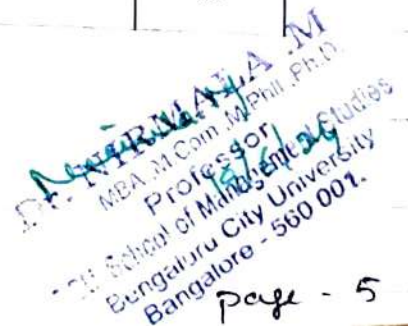 Dr. NIRMALA .M
MBA .M Com .M.Phil .Ph.D.
Professor
18/6/24
School of Management Studies
Bengaluru City University
Bangalore - 560 001.
page - 5